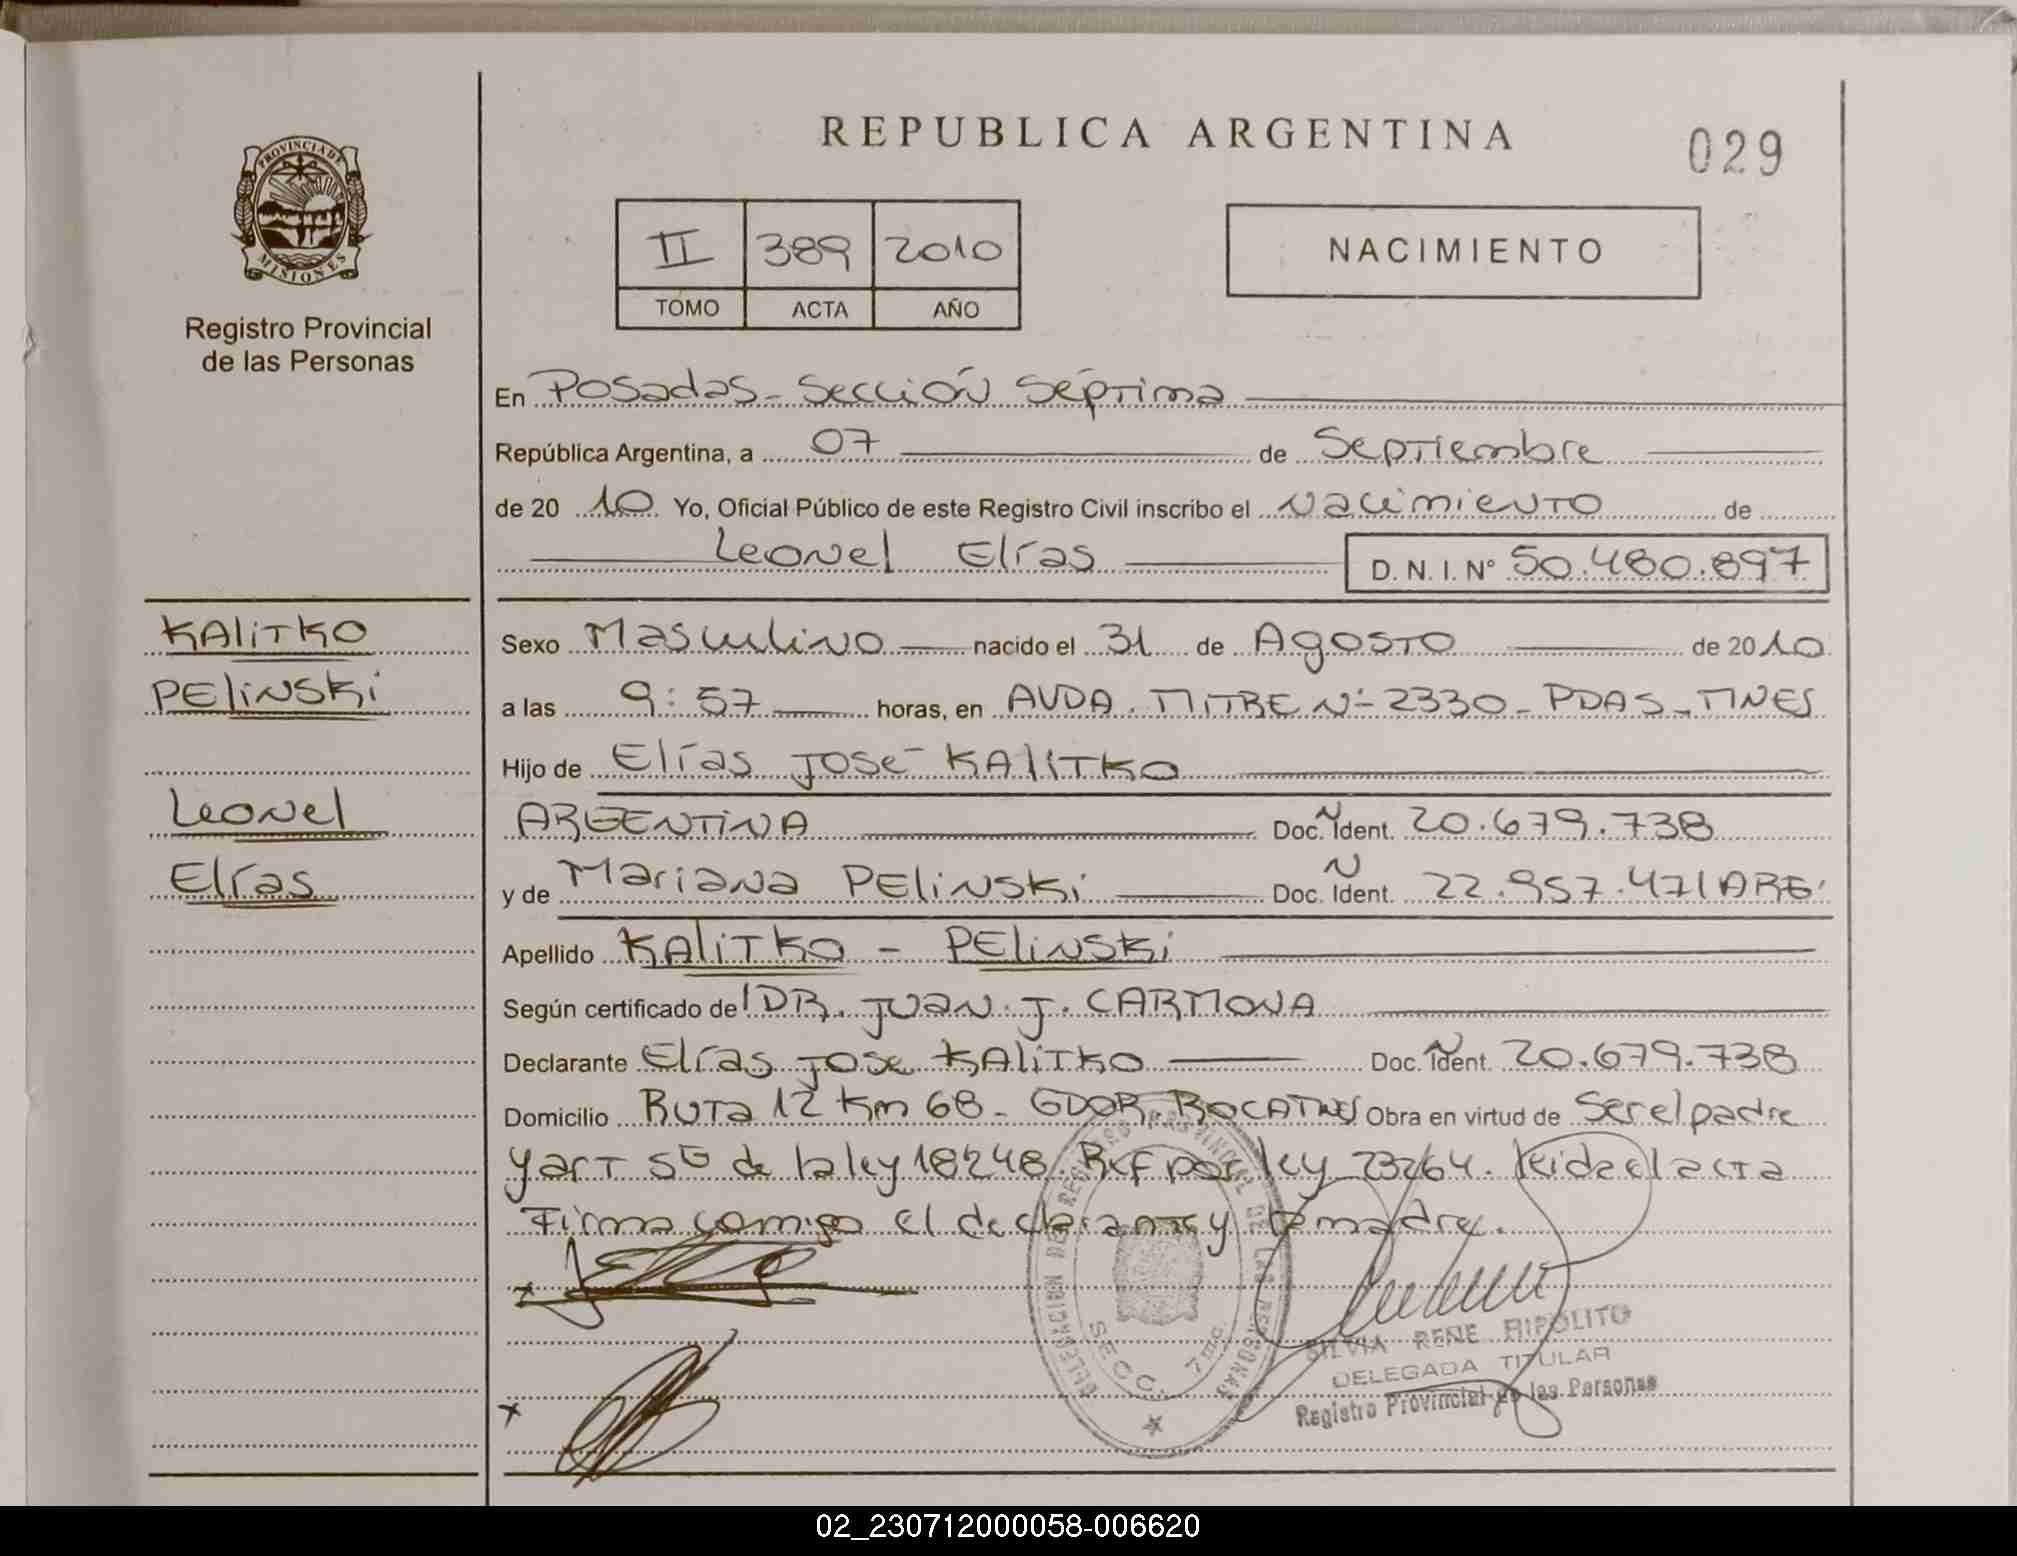 REPUBLICA ARGENTINA
029
PROVINCIA DE
MISIONES
Registro Provincial
de las Personas
II 389 2010
TOMO ACTA AÑO
NACIMIENTO
En Posadas - Sección Séptima
República Argentina, a 07 de Septiembre
de 20 10 Yo, Oficial Público de este Registro Civil inscribo el Nacimiento de
Leonel Elías D. N. I. N° 50.480.897
KALITKO
PELINSKI
Leonel
Elías
Sexo Masculino nacido el 31 de Agosto de 2010
a las 9:57 horas, en AVDA. MITRE Nº 2330 - PDAS - MNES
Hijo de Elías José KALITKO
ARGENTINA Doc. Ident. N 20.679.738
y de Mariana PELINSKI Doc. Ident. N 22.957.471 ARG.
Apellido KALITKO - PELINSKI
Según certificado de DR. JUAN J. CARMONA
Declarante Elías José KALITKO Doc. Ident. N 20.679.738
Domicilio Ruta 12 Km 6B - GDOR. ROCA MNES Obra en virtud de Ser el padre
y art 5º de la ley 18248. Ref por ley 23264. leida el acta
Firma comigo el declarante y la madre.
DELEGACION DEL REGISTRO PROVINCIAL DE LAS PERSONAS
SECC. 7ma.
SILVIA RENE HIPOLITO
DELEGADA TITULAR
Registro Provincial de las Personas
02_230712000058-006620